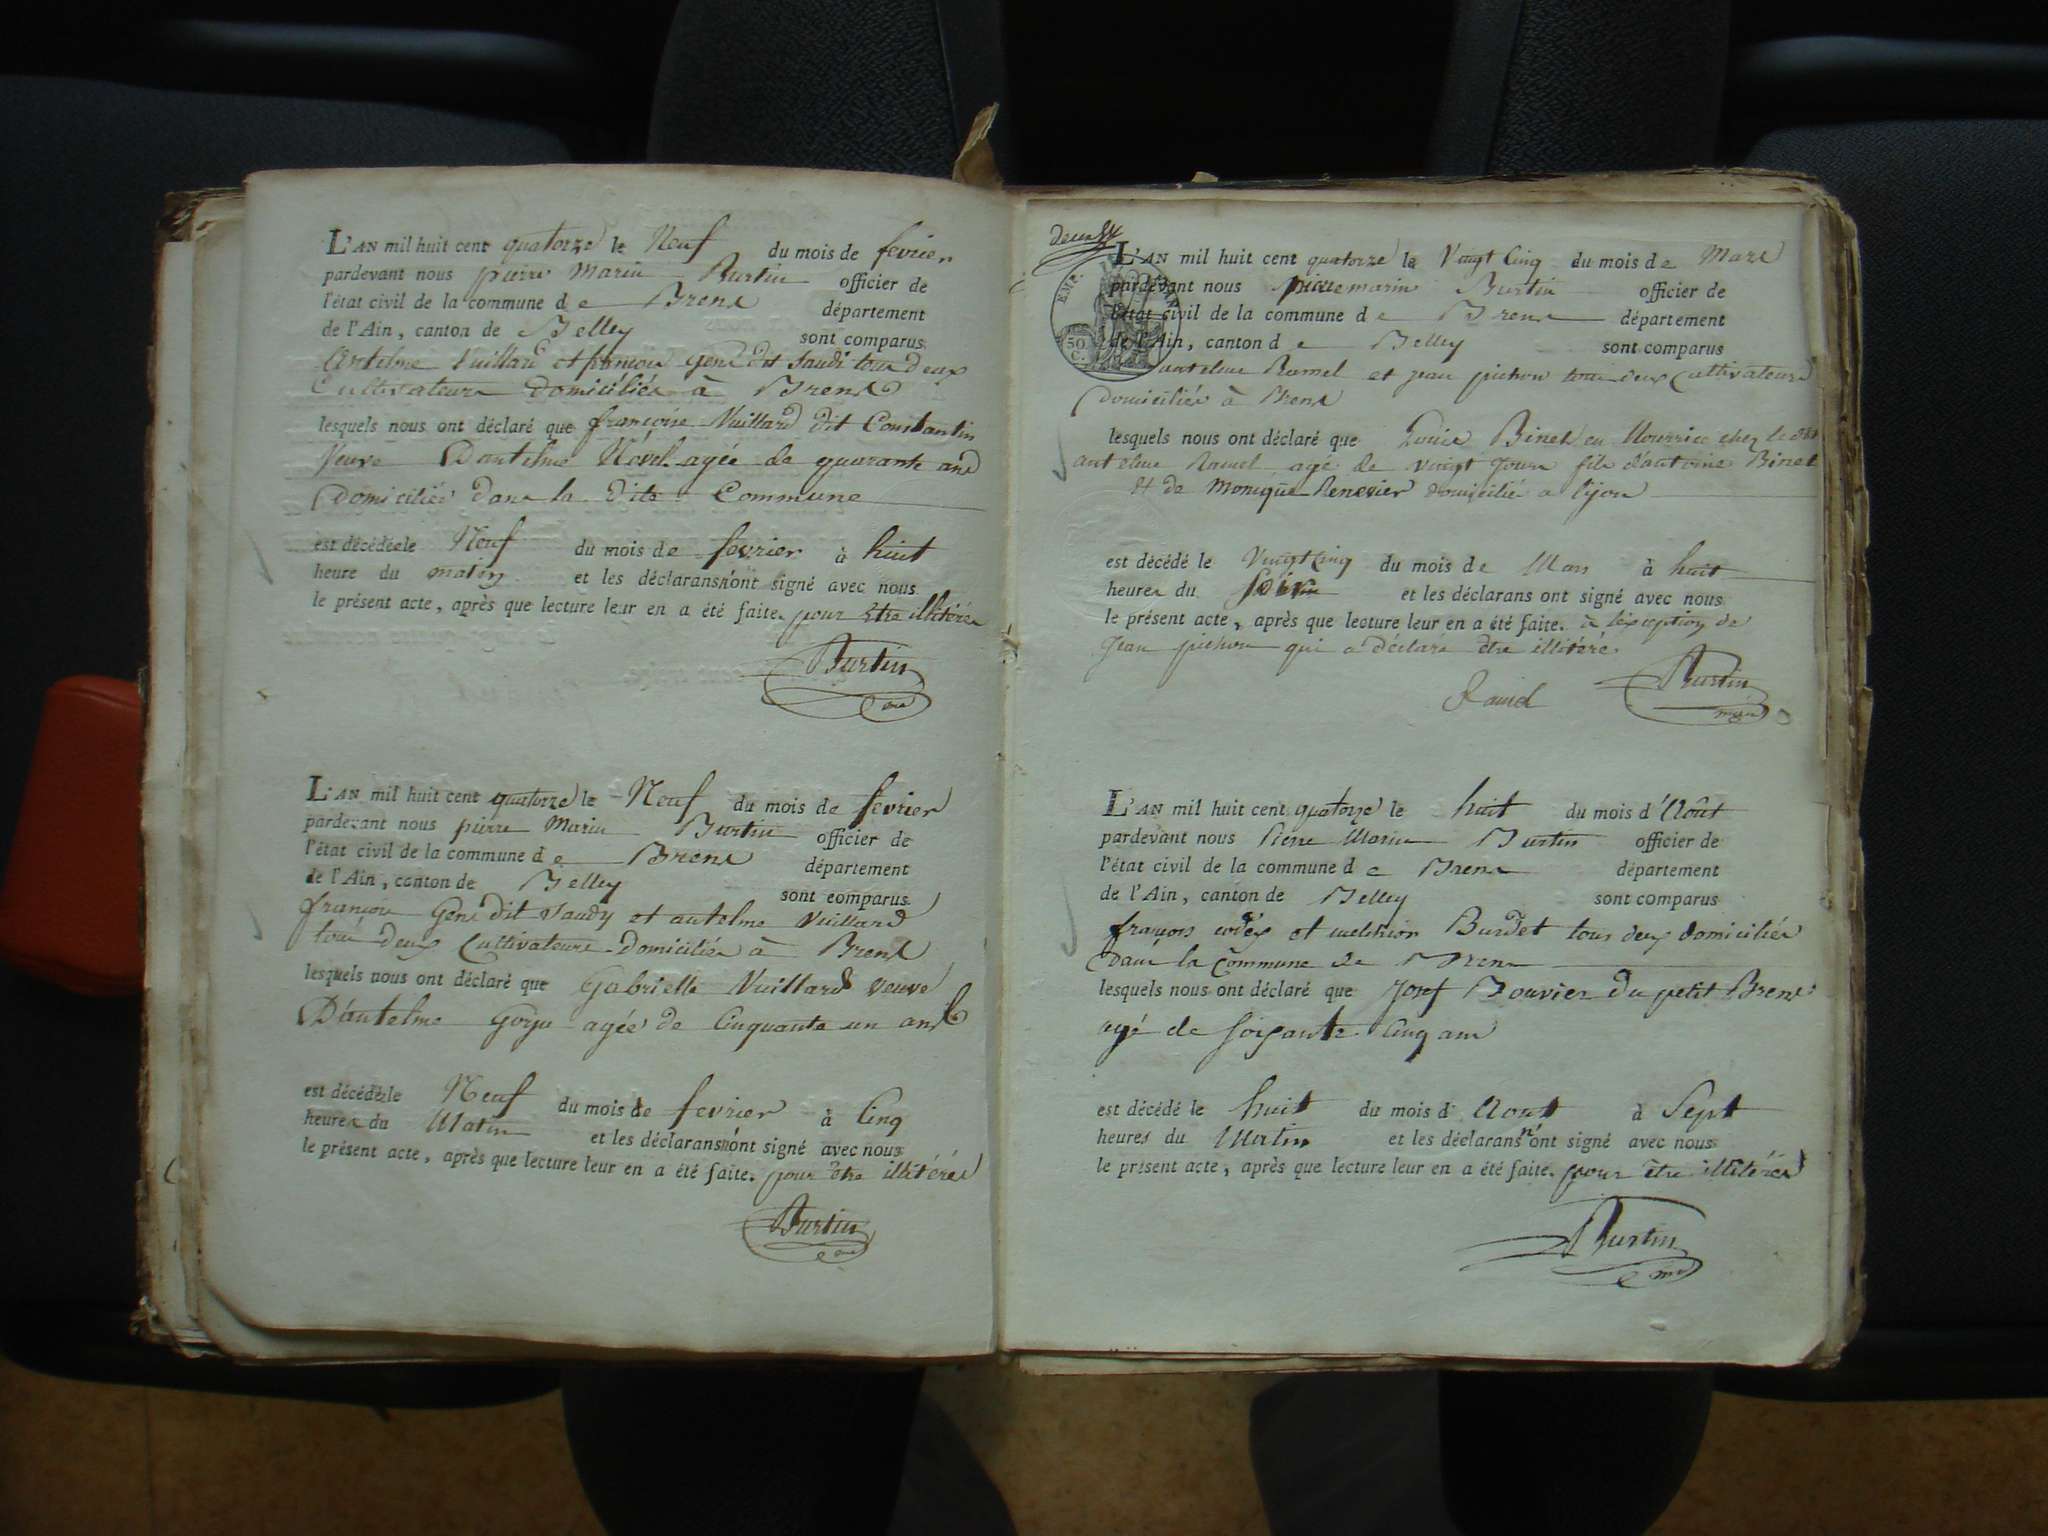 L'AN mil huit cent quatorze le Neuf du mois de fevrier
pardevant nous pierre Marin Burtin officier de
l'état civil de la commune de Brens département
de l'Ain, canton de Belley sont comparus
Antelme Vuillard et françois gens dit Jaudi tous deux
Cultivateurs domiciliés à Brens
lesquels nous ont déclaré que françoise Vuillard dit Constantin
Veuve D'antelme Névil agée de quarante ans
Domiciliée dans la dite Commune
est décédée le Neuf du mois de fevrier à huit
heure du matin et les déclarans n'ont signé avec nous
le présent acte, après que lecture leur en a été faite. pour etre illitérés
Burtin
L'AN mil huit cent quatorze le Neuf du mois de fevrier
pardevant nous pierre Marin Burtin officier de
l'état civil de la commune de Brens département
de l'Ain, canton de Belley sont comparus
françois Gens dit Jaudy et antelme Vuillard
tous deux Cultivateurs Domiciliés à Brens
lesquels nous ont déclaré que Gabrielle Vuillard veuve
D'antelme Goyu agée de Cinquante un ans
est décédée le Neuf du mois de fevrier à Cinq
heures du Matin et les déclarans n'ont signé avec nous
le présent acte, après que lecture leur en a été faite. pour être illitérés
Burtin
deux
L'AN mil huit cent quatorze le Vingt Cinq du mois de Mars
pardevant nous pierre marin Burtin officier de
l'état civil de la commune de Brens département
de l'Ain, canton de Belley sont comparus
50 C.
antelme Ramel et jean pichon tous deux Cultivateurs
Domiciliés à Brens
lesquels nous ont déclaré que Louis Binet en Nourrice chez le dit
antelme Ramel agé de vingt Jours fils d'antoine Binet
et de Monique Renevier domicilié a Lyon
est décédé le Vingt Cinq du mois de Mars à huit
heures du et les déclarans ont signé avec nous
le présent acte, après que lecture leur en a été faite. à l'exception de
Jean pichon qui a déclaré être illitéré
Ramel Burtin
L'AN mil huit cent quatorze le huit du mois d'Août
pardevant nous Pierre Marin Burtin officier de
l'état civil de la commune de Brens département
de l'Ain, canton de Belley sont comparus
françois et melchior Burdet tous deux domiciliés
Dans la Commune de Brens
lesquels nous ont déclaré que Josef Bouvier du petit Brens
agé de soixante Cinq ans
est décédé le huit du mois d'Aout à Sept
heures du Matin et les déclarans n'ont signé avec nous
le présent acte, après que lecture leur en a été faite. pour être illitérés
Burtin